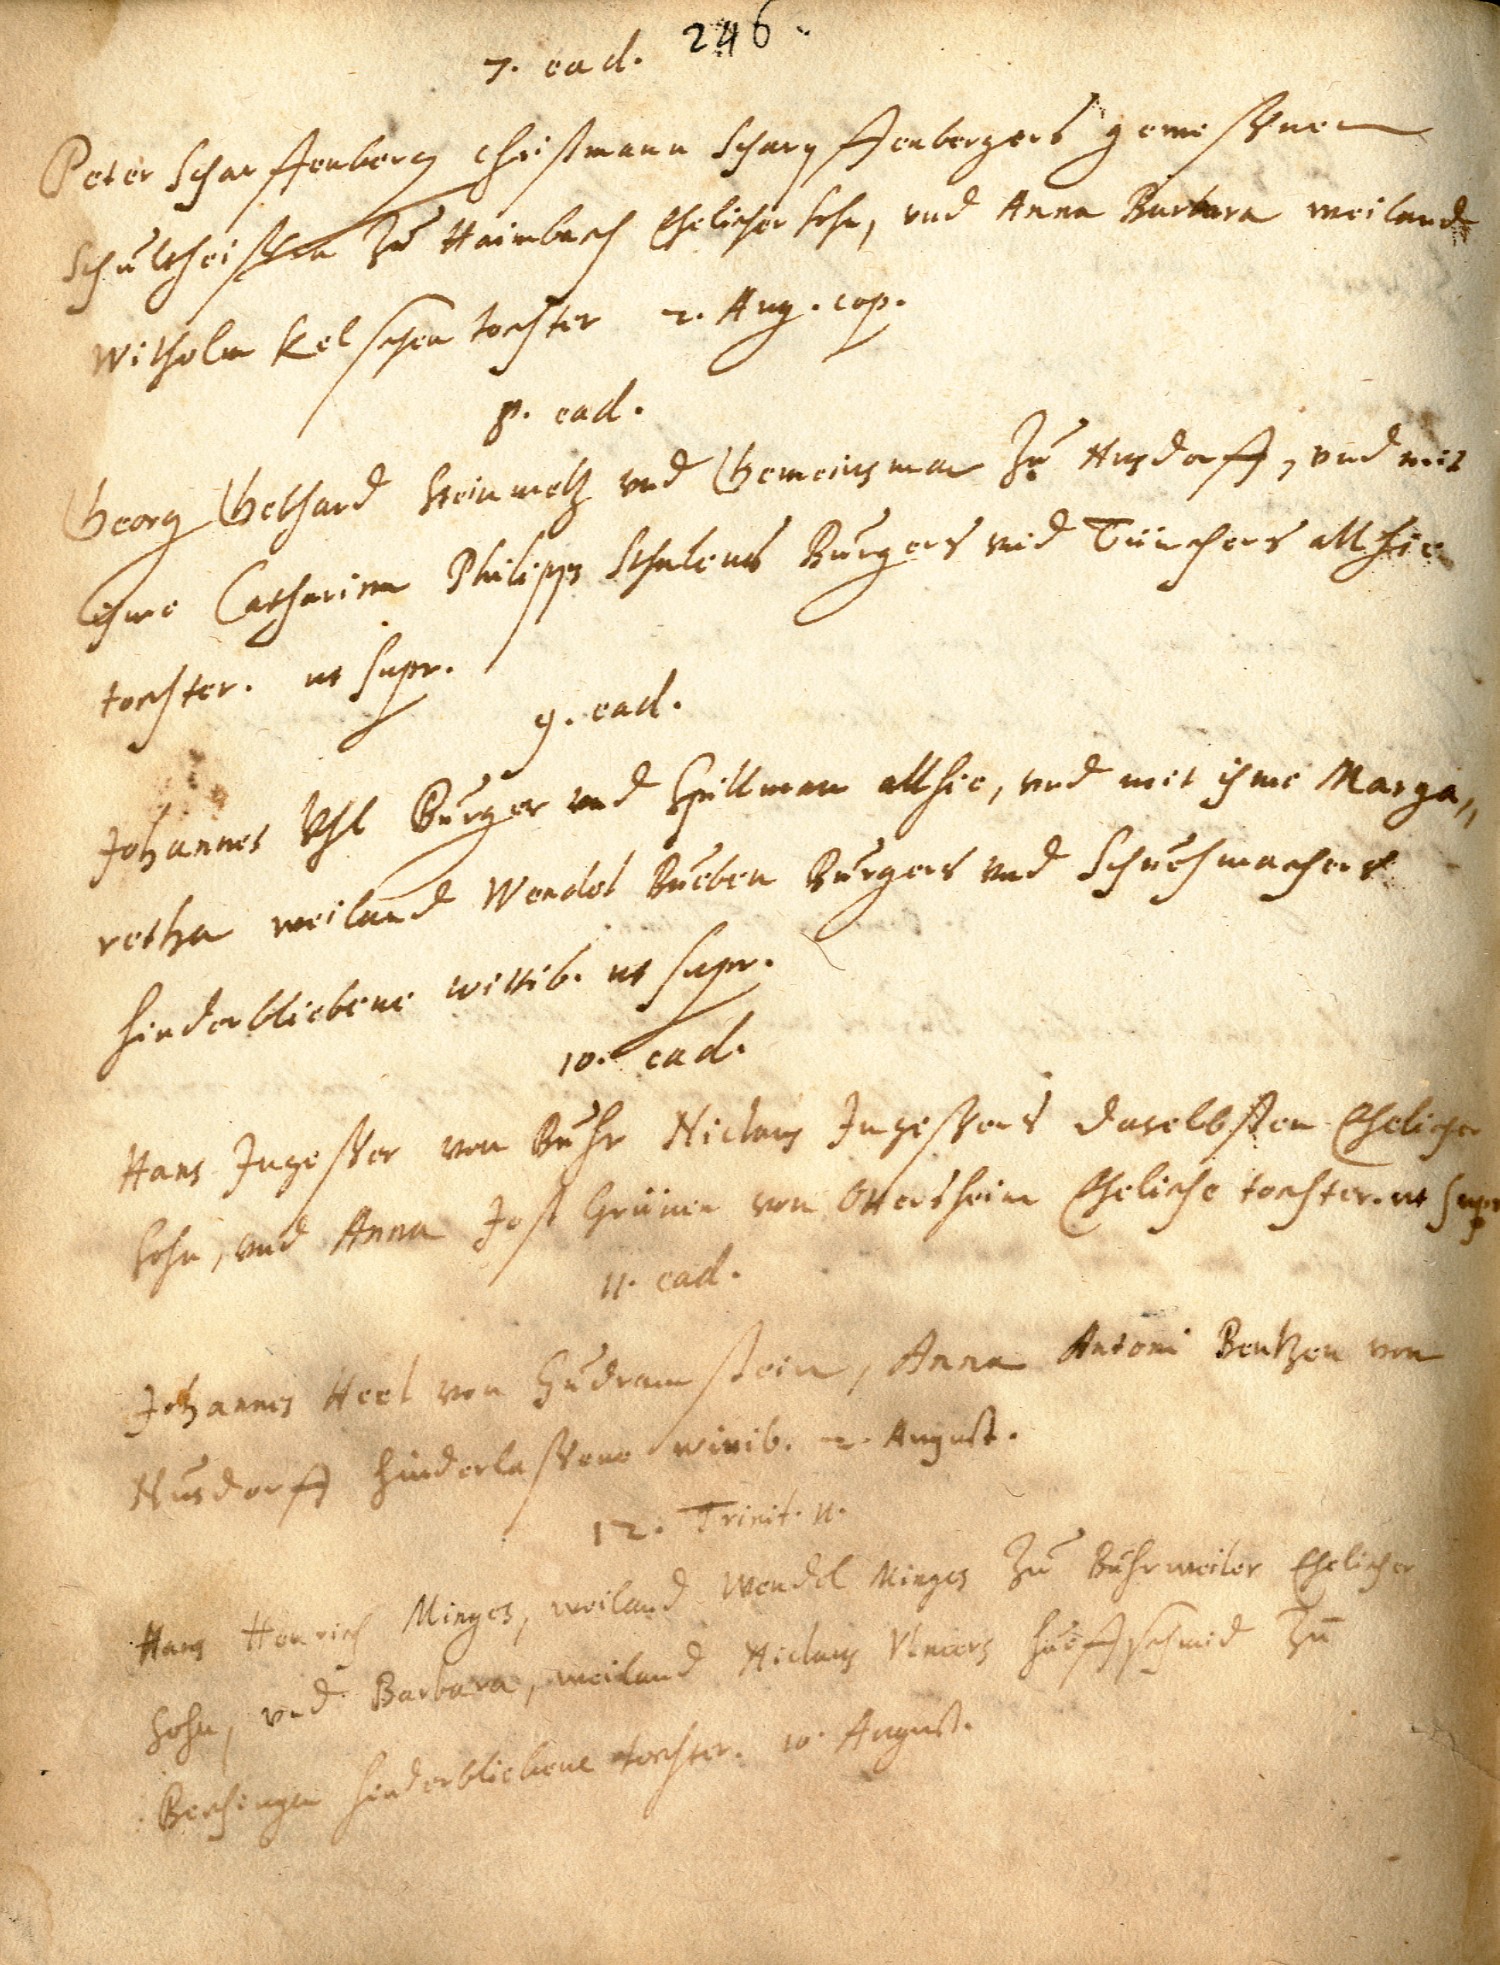 246.
7. ead.
Peter Scharffenberg Christmann Scharpffenbergers gewesßnen
Schultheißen zu Haimbach Ehelicher Sohn, und Anna Barbara weiland
Wilhelm Kelschen tochter 2. Aug. cop.
8. ead.
Georg Gebhard Steinmetz und Gemeinsman zu Nusdorff, und mit
ihme Catharina Philipps Burgers und Tünchers allhie
tochter. ut supr.
9. ead.
Johannes Uhl Burger und Spillman allhie, und mit ihme Marga„
retha weiland Wendel Bueben Burgers und Schuehmachers
hinderbliebene wittib. ut supr.
10. ead.
Hans Ingesser von Buhr Niclaus Ingessers daselbsten Ehelicher
Sohn, und Anna Jost Grünen von Ottersheim Eheliche tochter. ut supr
11. ead.
Johannes Heel von Gudramstein, Anna Antoni Bentzen von
Nusdorff hinderlaßene witib. 2. August.
12. Trinit. 11.
Hans Henrich Minges, weiland Wendel Minges zu Buhrweiler Ehelicher
Sohn, und Barbara, weiland Niclaus hueffschmid zu
hinderbliebene tochter. 10. August.